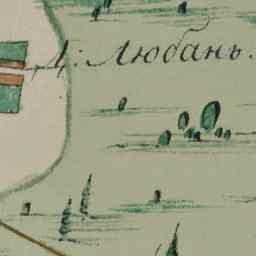 Д: Любань.